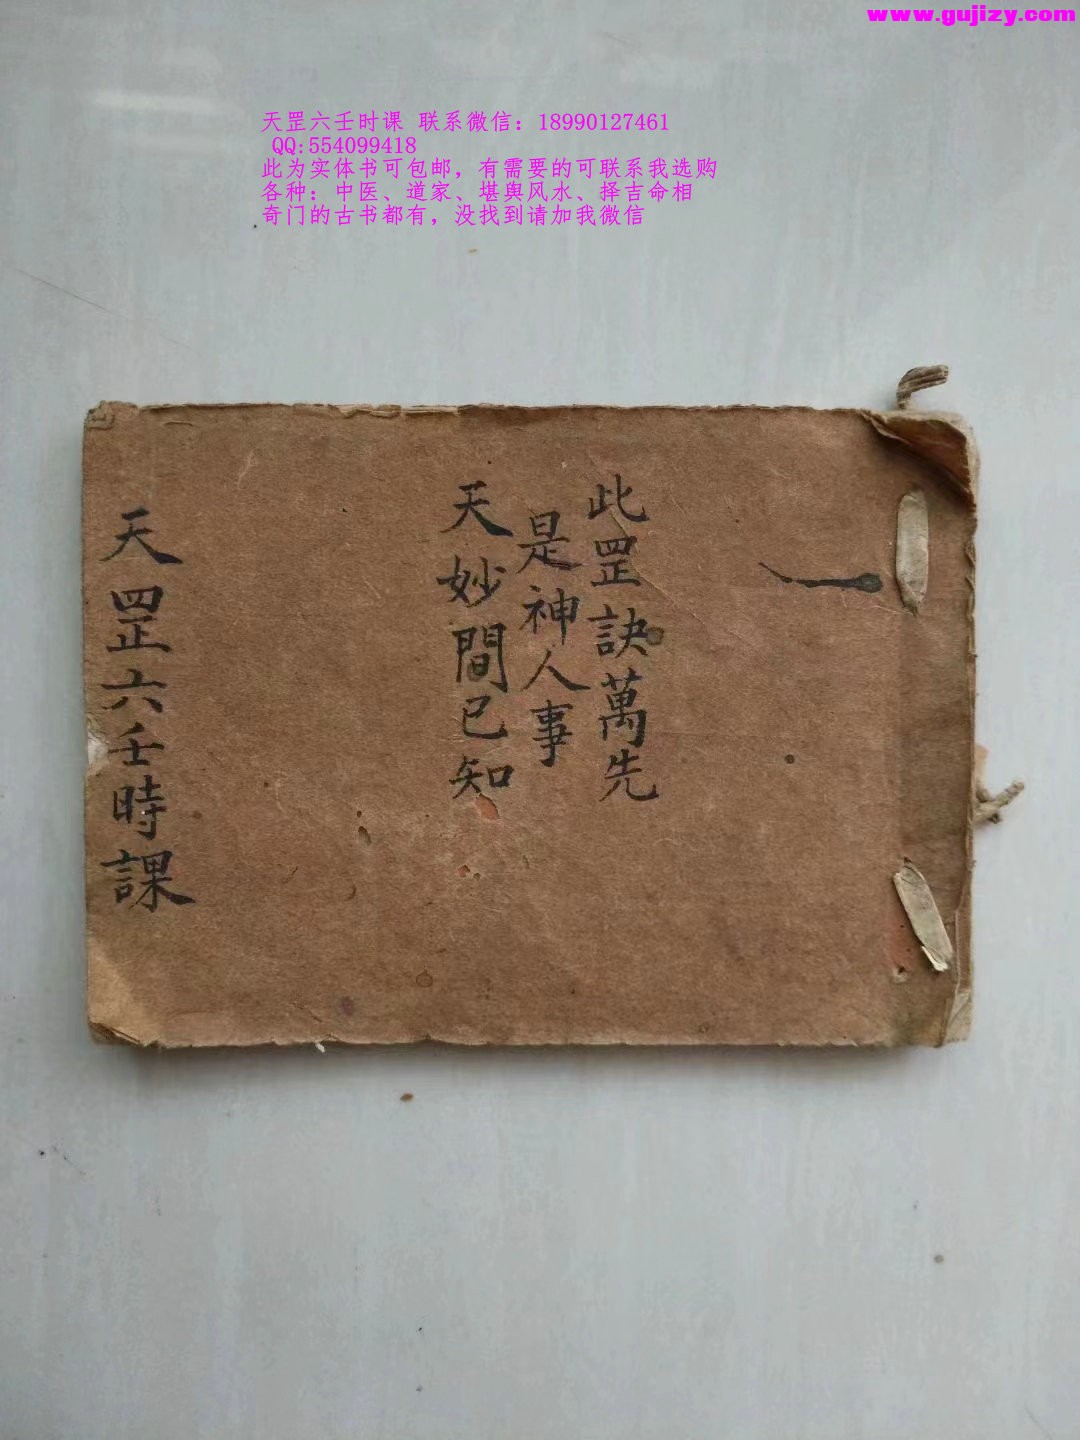 www.gujizy.com
天罡六壬时课 联系微信：18990127461
QQ:554099418
此为实体书可包邮，有需要的可联系我选购
各种：中医、道家、堪舆风水、择吉命相
奇门的古书都有，没找到请加我微信
一
此罡訣萬先
是神人事
天妙間已知
天罡六壬時課